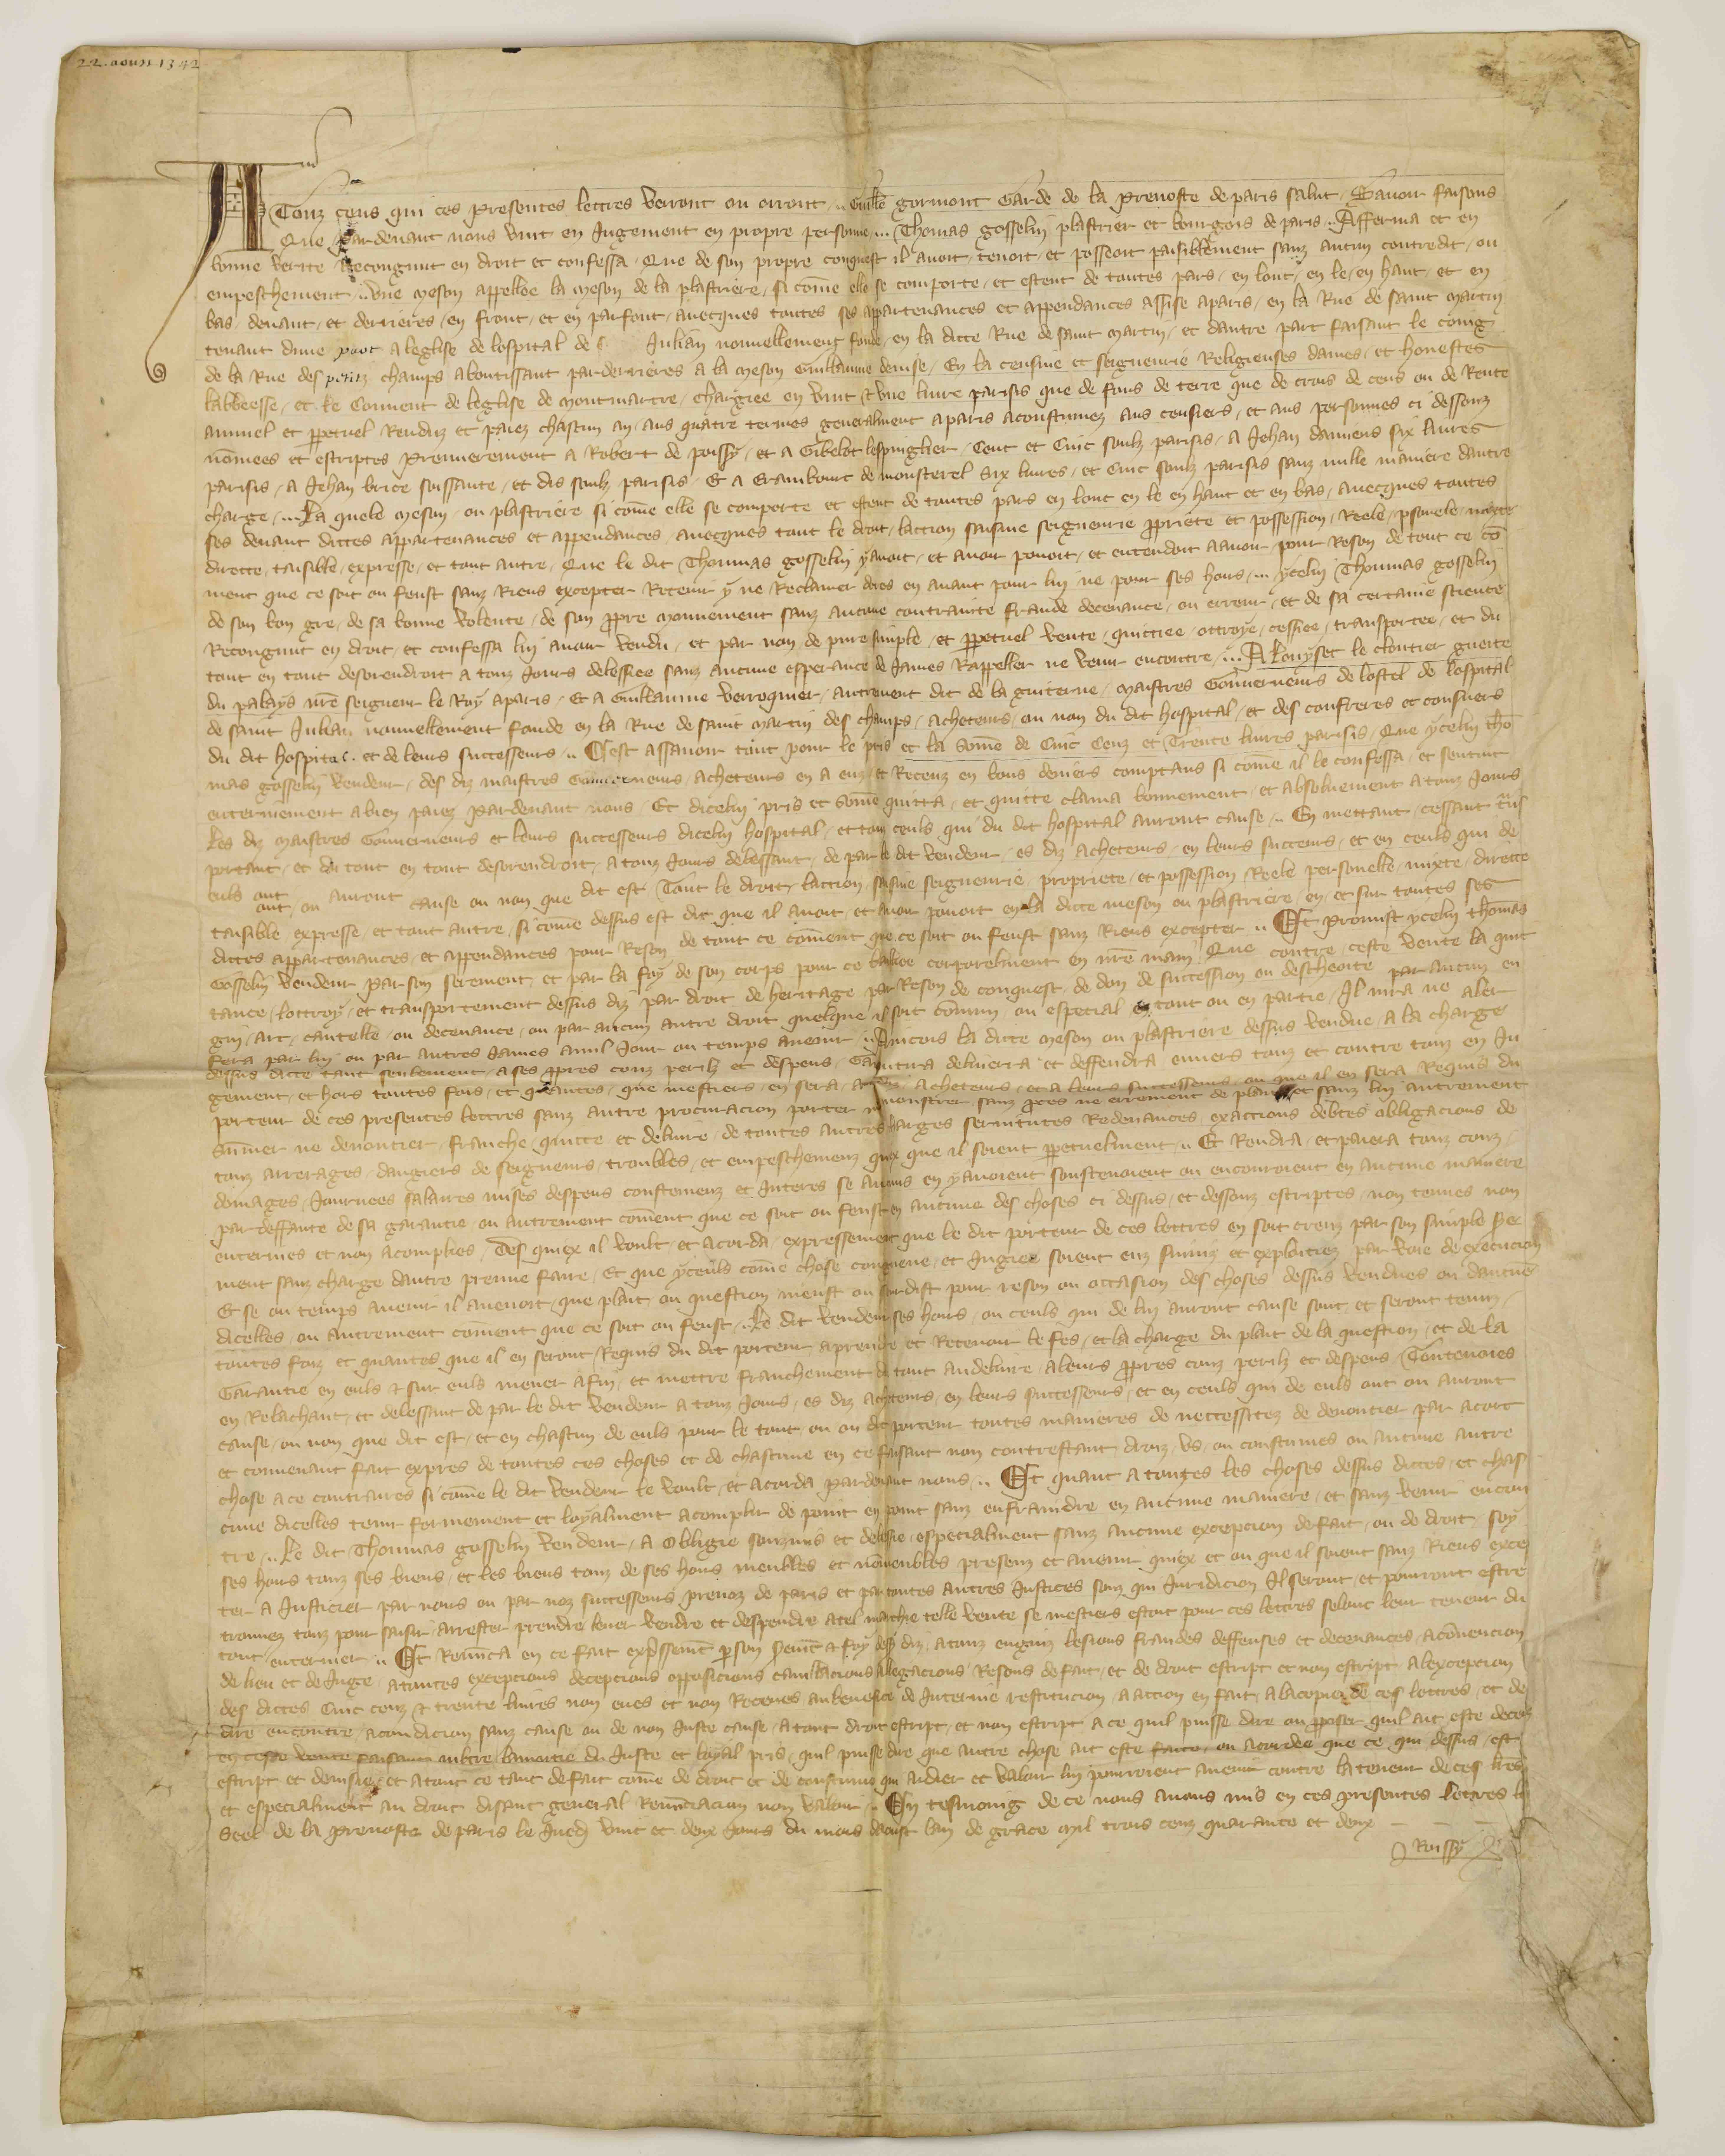 22. aoust 1342
A Touz ceus qui ces presentes lettres verront ou orront .. Guille gormont Garde de la Prevoste de paris salut Savoir faisons
Que pardevant nous vint en Jugement en propre personne ... Thomas gosselin plastrier et bourgois de paris .. Afferma et en
bonne verite Recongnut en droit et confessa Que de son propre conquest il avoit tenoit et posseoit paisiblement sanz aucun contredit ou
empeschement .. Une meson appellee la meson de la plastriere si come elle se comporte et estent de toutes pars en lonc en le en haut et en
bas devant et derrieres en front et en parfont avecques toutes ses appartenances et appendances assise a paris en la Rue de saint martin
tenant dune part a leglise de lospital de Julian nouvellement fonde en la dicte Rue de saint martin et dautre part faisant le coing
de la Rue des petiz champs aboutissant par derrieres a la meson Guillaume denise En la censive et seigneurie Religieuses dames et honestes
labbeesse et le Convent de leglise de montmartre chargiee en vint et une livre parisis que de fons de terre que de crois de cens ou de Rente
annuel et perpetuel Renduz et paiez chascun an aus quatre termes generalment a paris acoustumez aus censiers et aus personnes ci dessouz
nomees et escriptes Premierement a Robert de poissy et a Gibelot lespinglier Cent et Cinc soulz parisis a Jehan damiens six livres
parisis a Jehan brice soissante et dis soulz parisis Et a Erambourc de monsterel six livres et Cinc soulz parisis sanz nulle maniere dautre
charge ... La quele meson ou plastriere si come elle se comporte et estent de toutes pars en lonc en le en haut et en bas avecques toutes
ses devant dictes appartenances et appendances avecques tout le droit laction saisine seigneurie propriete et possession Reele psonele mixte
directe taisible expresse et tout autre Que le dit Thoumas gosselin y avoit et avoir povoit et entendoit a avoir pour Reson de tout ce co
ment que ce soit ou feust sanz Riens excepter Retenir y ne Reclamer dores en avant pour lui ne pour ses hoirs ... ycelui Thoumas gosselin
de son bon gre de sa bonne volente de son ppre mouvement sanz aucune contrainte fraude decevance ou erreur et de sa certaine science
Recongnut en droit et confessa lui avoir vendu et par non de pure simple et ppetuel vente quittiee ottroye cessiee transportee et du
tout en tout desorendroit a touz jours delessiee sanz aucune esperance de james Rappeller ne venir encontre ... A Louyset le cloutier gueite
du palays nre seigneur le Roy a paris Et a Guillaume verroquier autrement dit de la guiterne maistres Gouverneurs de lostel de lospital
de saint Julian nouvellement fonde en la Rue de saint martin des champs acheteurs ou non du dit hospital et des confreres et consuers
du dit hospital et de leurs successeurs .. Cest assavoir tout pour le pris et la some de Cinc Cenz et Trente livres parisis Que ycelui tho
mas gosselin vendeur des diz maistres Gouverneurs acheteurs en a euz et Receuz en bons deniers comptans si come il le confessa et sentint
enterinement a bien paiez Pardevant nous Et dicelui pris et some quitta et quitte clama bonnement et absoluement a touz jours
Les diz maistres Gouverneurs et leurs successeurs dicelui hospital et touz ceuls qui du dit hospital auront cause .. En mettant cessant trns
portant et du tout en tout desorendroit a touz jours delessant de par le dit vendeur es diz acheteurs en leurs succeurs et en ceuls qui de
euls ont ou auront cause ou non que dit est Tout le droit laction saisine seigneurie propriete et possession Reele personelle mixte directe
taisible expresse et tout autre si come dessus est dit que il avoit et avoir povoit en la dicte meson ou plastriere en et sur toutes ses
dictes appartenances et appendances pour Reson de tout ce coment que ce soit ou feust sanz Riens excepter .. Et promist ycelui thomas
Gosselin vendeur Par son serement et par la foy de son corps pour ce baillee corporelment en nre main Que contre ceste vente la quit
tance lottroy et transportement dessus diz par droit de heritage par Reson de conquest de don de succession ou descheoite par aucun en
gin art cautelle ou decevance ou par aucun autre droit quelque il soit comun ou especial en tout ou en partie Il nira ne aler
fera par lui ou par autres james a nul jour ou temps avenir .. Aincois la dicte meson ou plastriere dessus vendue a la charge
dessus dicte tant seulement a ses ppres couz perilz et despens Garantira delivrera et deffendra envers touz et contre touz en Ju
gement et hors toutes fois et quantes que mestiers en sera acheteurs et a leurs successeurs ou que il en sera Requis du
porteur de ces presentes lettres sanz autre procuracion porter monstrer sanz pces ne errement de plait et sanz lui autrement
sumer ne denoncier franche quitte et delivre de toutes autres charges servitutes Redevances exactions debtes obligacions de
touz arrerages dangiers de seigneurs troubles et empeschemenz quex que il soient ppetuelment .. Et Rendra et paiera touz couz
domages journees salaires mises despens coustemenz et Interes se aucuns en y avoient soustenoient ou encouroient en aucune maniere
par deffaute de sa garantie ou autrement coment que ce soit ou feust en aucune des choses ci dessus et dessouz escriptes non tenues non
enterines et non acomplies Des quiex il voult et acorda expressement que le dit porteur de ces lettres en soit creuz par son simple ser
ment sanz charge dautre preuve faire Et que yceuls come chose congneue et Jugiee soient euz suiviz et exploitiez par voie de execucion
Et se ou temps avenir il avenoit que plait ou question meust ou sourdist pour reson ou occasion des choses dessus vendues ou daucune
dicelles ou autrement coment que ce soit ou feust .. Le dit vendeur ses hoirs ou ceuls qui de lui auront cause sont et seront tenuz
toutes foiz et quantes que il en seront Requis du dit porteur a prendre et Recevoir le fes et la charge du plait de la question et de la
Garantie en euls et sur euls mener a fin et mettre franchement du tout au delivre a leurs ppres couz perilz et despens Toutevoies
en Relachant et delessant de par le dit vendeur a touz jours es diz acheteurs en leurs successeurs et en ceuls qui de euls ont ou auront
cause ou non que dit est et en chascun de euls pour le tout ou ou dit porteur toutes manieres de neccessitez de denoncier par acort
et convenant fait expres de toutes ces choses et de chascune en ce faisant non contrestant droiz us ou coustumes ou aucune autre
chose a ce contraires si come le dit vendeur le voult et acorda pardevant nous .. Et quant a toutes les choses dessus dictes et chas
cune dicelles tenir fermement et loyalment acomplir de point en point sanz enfraindre en aucune maniere et sanz venir encon
tre .. Le dit Thoumas gosselin vendeur a Obligie souzmis et delessie especialment sanz aucune excepcion de fait ou de droit soy
ses hoirs touz ses biens et les biens touz de ses hoirs meubles et nomeubles presenz et avenir quiex et ou que il soient sanz Riens excep
ter a Justicier par nous ou par noz successeurs prevoz de paris et par toutes autres Justices souz qui juridicion Il seront et pourront estre
trouvez touz pour saisir arrester prendre lever vendre et despendre a tel marchie telle vente se mestiers estoit pour ces lettres selonc leur teneur du
tout enteriner .. Et Renuca en ce fait expssemt p son semt et foy dess diz a touz engins lesions fraudes deffenses et decevances a covencion
de lieu et de juge a toutes excepcions decepcions opposicions cavillacions allegacions Resons de fait et de droit escript et non escript a lexcepcion
des dictes Cinc cenz et trente livres non eues et non Receues au benefice de Interine restitucion a action en fait a la copie de ces lettres et de
dire encontre a condicion sanz cause ou de non juste cause a tout droit escript et non escript a ce quil puisse dire ou pposer quil ait este deceuz
en ceste vente faisant oultre la moitie du juste et loyal pris quil puisse dire que autre chose ait este faite ou acordee que ce qui dessus est
escript et devisie et a tout ce tant de fait come de droit et de coustume qui aidier et valoir lui pourroient avenir contre la teneur de ces lres
et especialment au droit disant general Renunciacion non valoir .. En tesmoing de ce nous avons mis en ces presentes lettres le
Seel de la prevoste de paris le jeudi vint et deux jours du mois daoust lan de grace mil trois cenz quarante et deux
Roissy